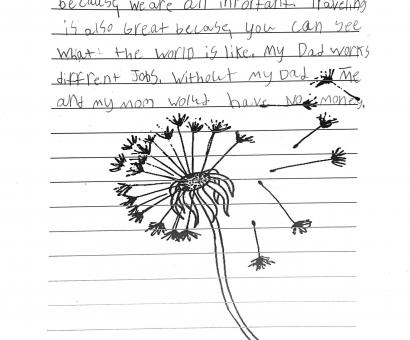 because we are all important. Traveling
is also great because you can see
what the world is like. My Dad works
different Jobs. Without my Dad me
and my mom would have no money.